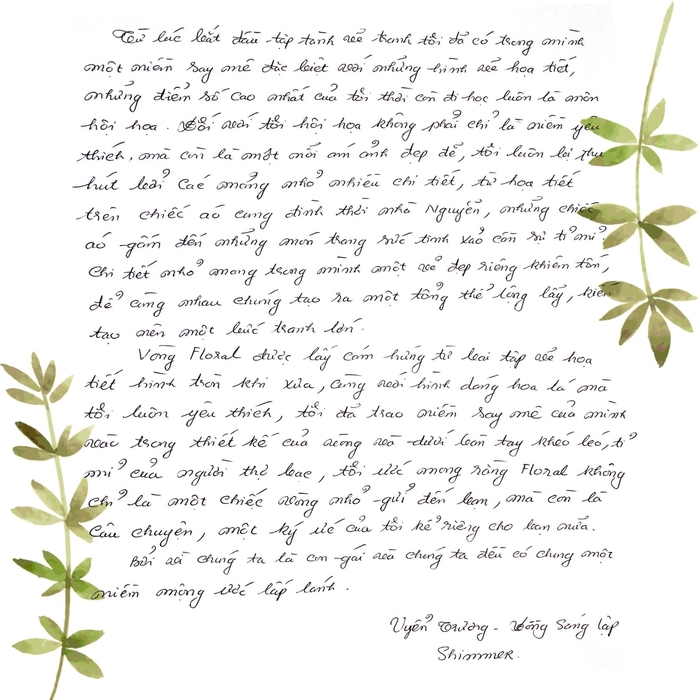 Từ lúc bắt đầu tập tành vẽ tranh tôi đã có trong mình
một niềm say mê đặc biệt với những hình vẽ họa tiết,
những điểm số cao nhất của tôi thời còn đi học luôn là môn
hội họa. Đối với tôi hội họa không phải chỉ là niềm yêu
thích, mà còn là một nỗi ám ảnh đẹp đẽ, tôi luôn bị thu
hút bởi các mảng nhỏ nhiều chi tiết, từ họa tiết
trên chiếc áo cung đình thời nhà Nguyễn, những chiếc
áo gấm đến những món trang sức tinh xảo cần sự tỉ mỉ.
Chi tiết nhỏ mang trong mình một vẻ đẹp riêng khiêm tốn,
để cùng nhau chúng tạo ra một tổng thể lộng lẫy, kiến
tạo nên một bức tranh lớn.
Vòng Floral được lấy cảm hứng từ bài tập vẽ họa
tiết hình tròn khi xưa, cùng với hình dáng hoa lá mà
tôi luôn yêu thích, tôi đã trao niềm say mê của mình
vào trong thiết kế của vòng và dưới bàn tay khéo léo, tỉ
mỉ của người thợ bạc, tôi ước mong rằng Floral không
chỉ là một chiếc vòng nhỏ gửi đến bạn, mà còn là
câu chuyện, một ký ức của tôi kể riêng cho bạn nữa.
Bởi vì chúng ta là con gái và chúng ta đều có chung một
niềm mộng ước lấp lánh.
Uyển Trương - Đồng Sáng lập
Shimmer.